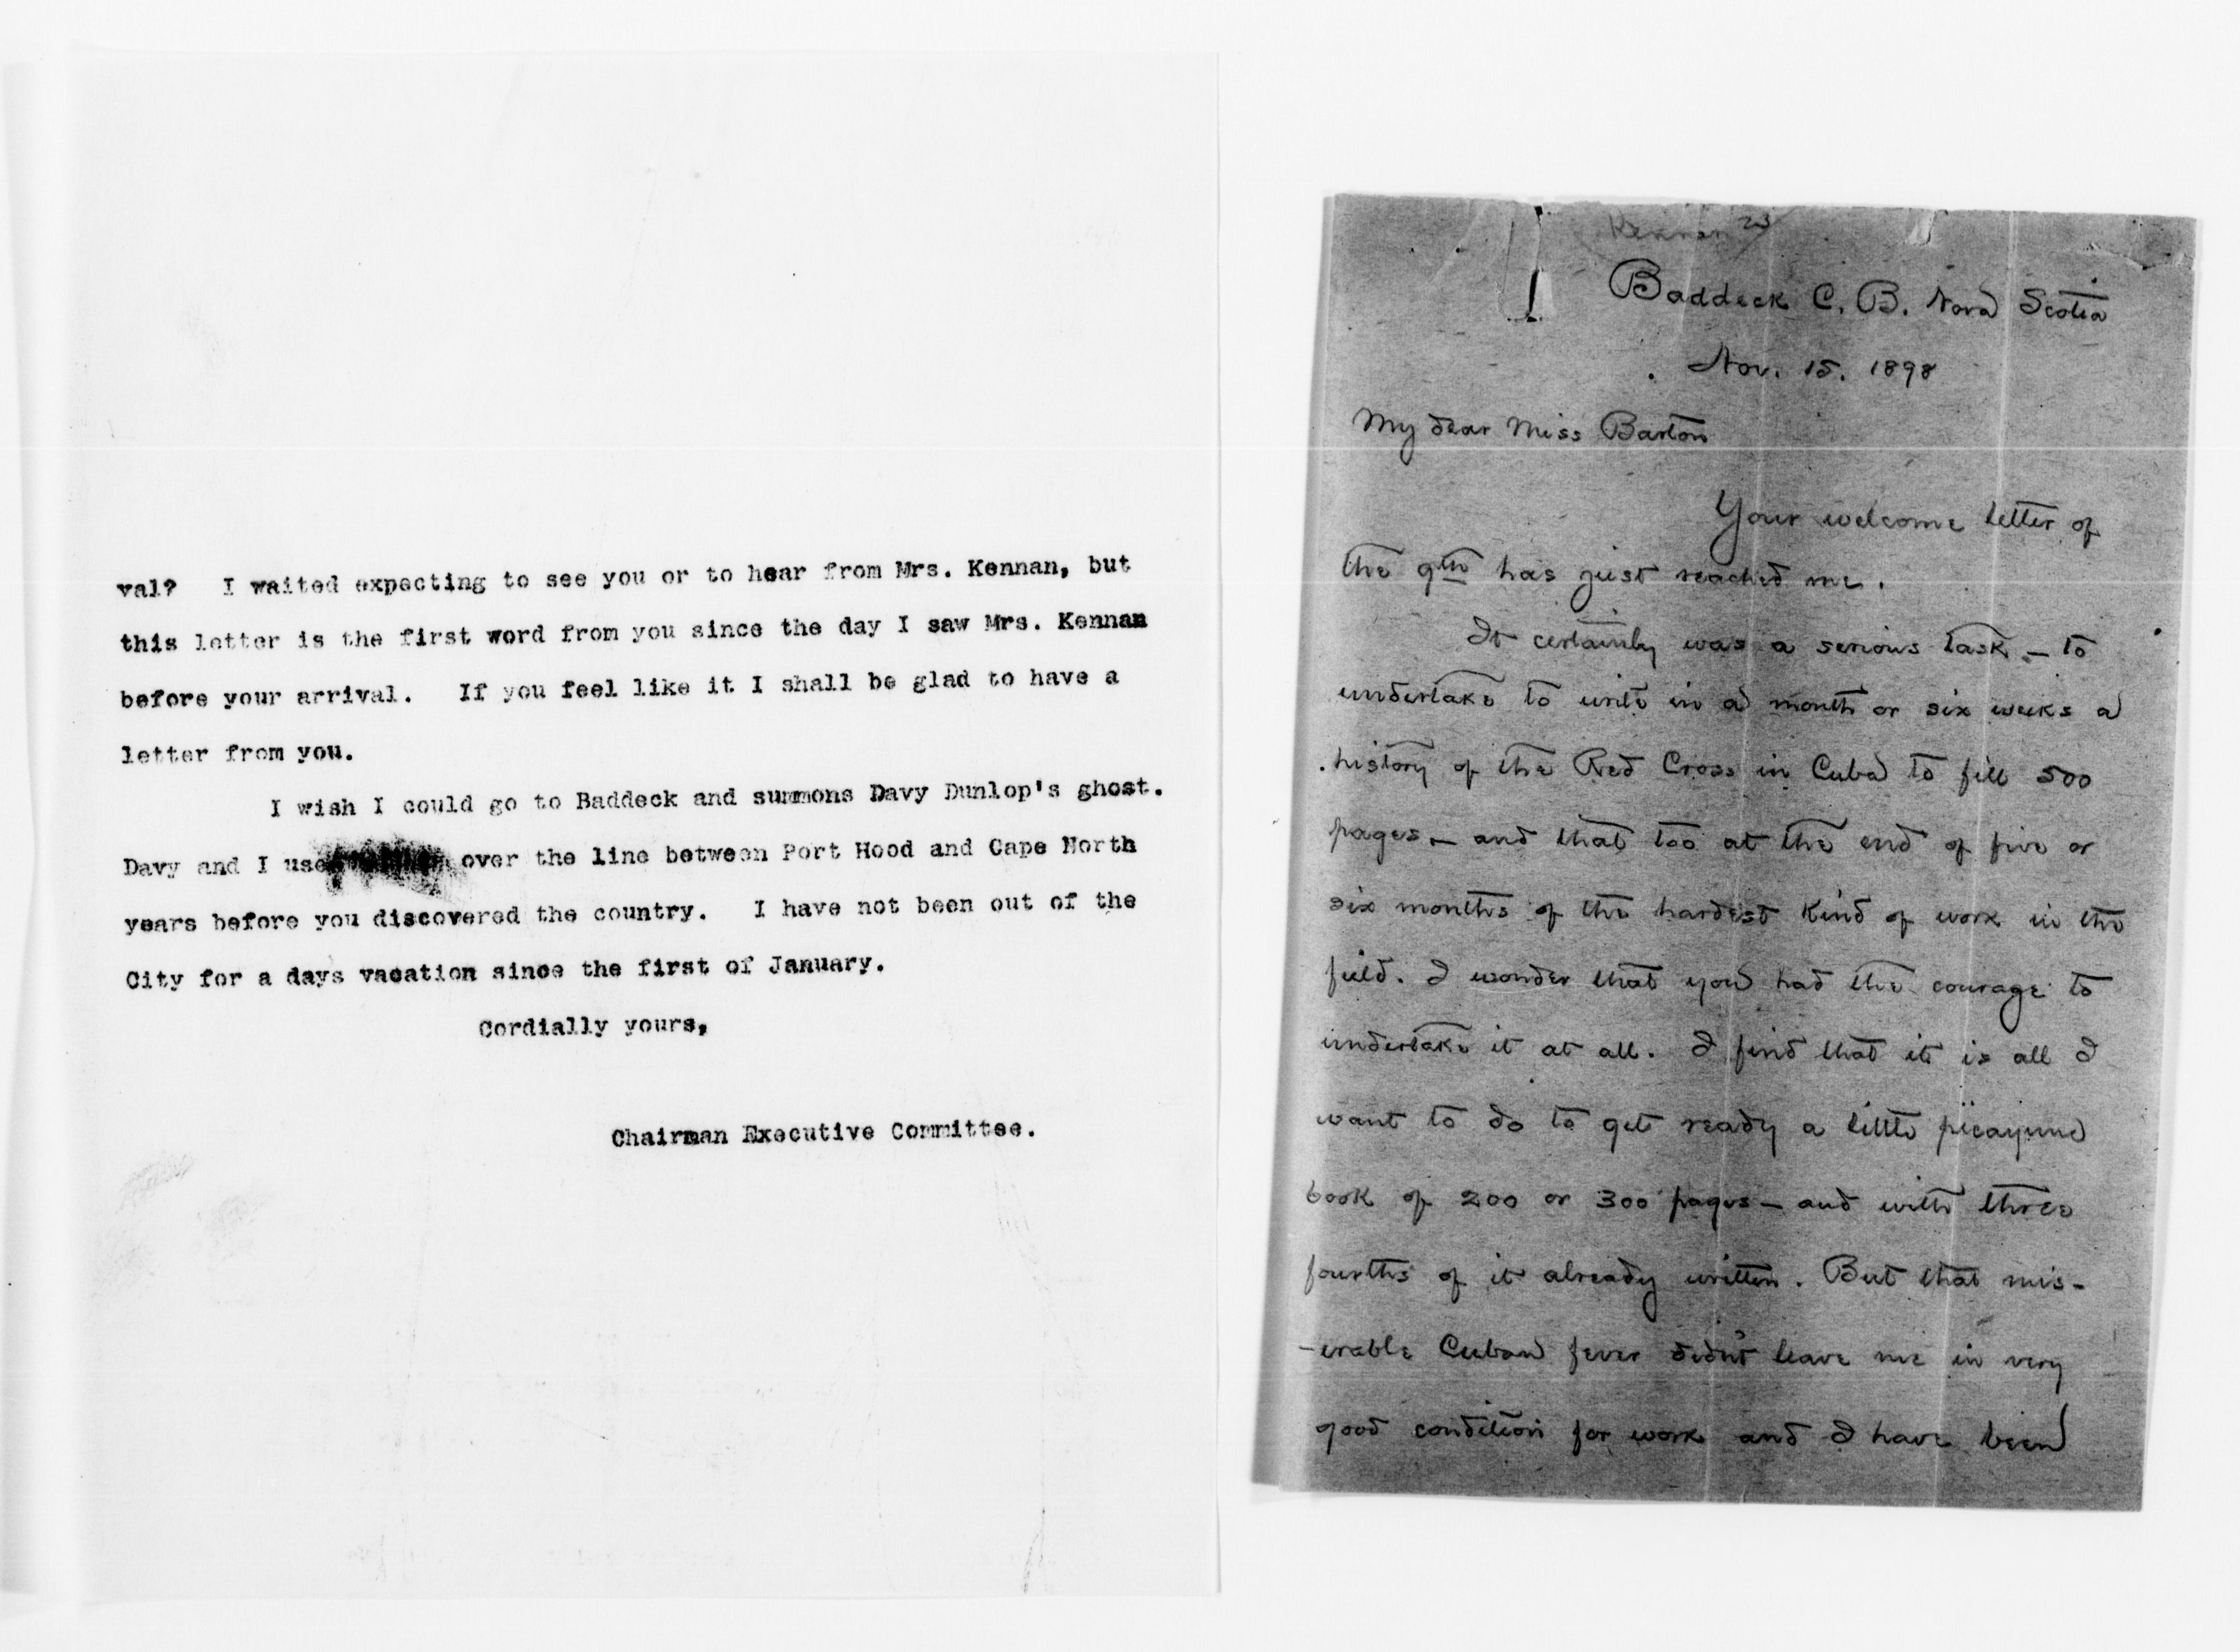 val?   I waited expecting to see you or to hear from Mrs. Kennan, but
this letter is the first word from you since the day I saw Mrs. Kennan
before your arrival.   If you feel like it I shall be glad to have a
letter from you.
I wish I could go to Baddeck and summons Davy Dunlop's ghost.
Davy and I use over the line between Port Hood and Cape North
years before you discovered the country.   I have not been out of the
City for a days vacation since the first of January.
Cordially yours,
Chairman Executive Committee.
Kennan
Baddeck C. B. Nova Scotia
Nov. 15. 1898
My dear Miss Barton
Your welcome letter of
the 9th has just reached me.
It certainly was a serious task – to
undertake to write in a month or six weeks a
history of the Red Cross in Cuba to fill 500
pages – and that too at the end of five or
six months of the hardest kind of work in the
field. I wonder that you had the courage to
undertake it at all. I find that it is all I
want to do to get ready a little picayune
book of 200 or 300 pages – and with three
fourths of it already written. But that mis-
-erable Cuban fever didn't leave me in very
good condition for work and I have been